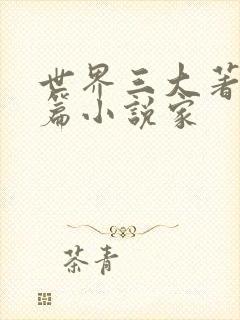 世界三大著
篇小說家
茶青